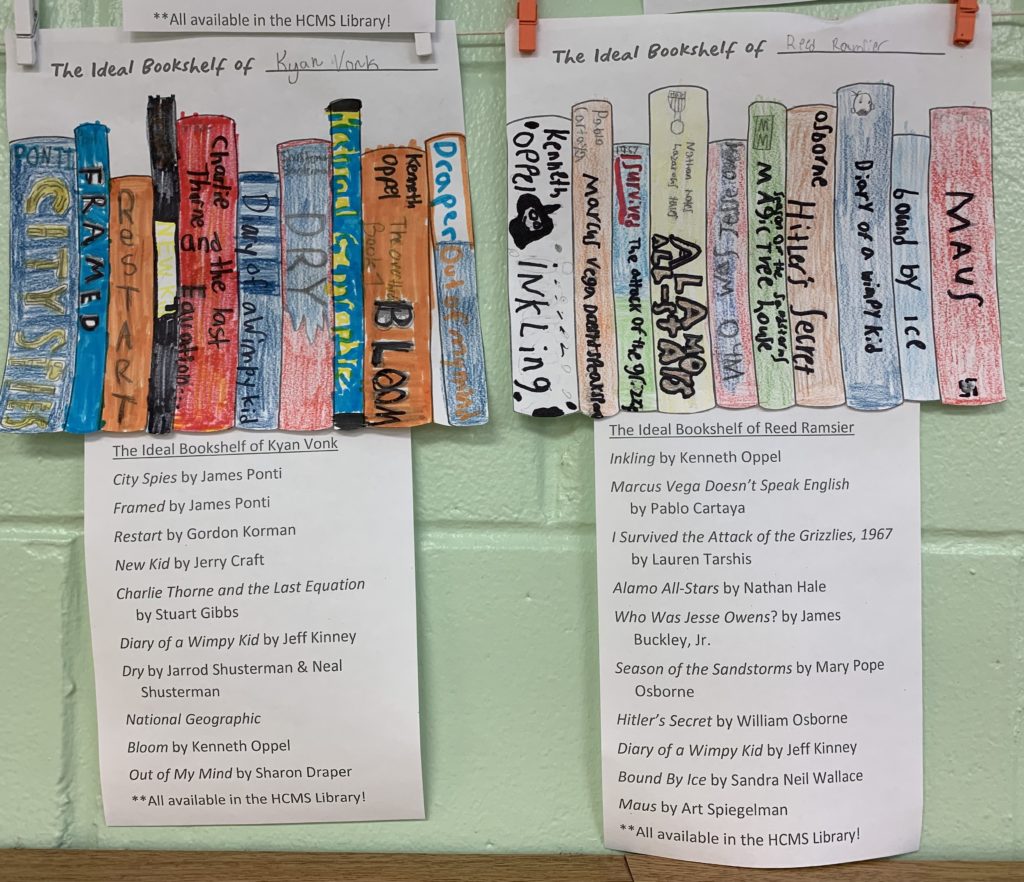 **All available in the HCMS Library!
The Ideal Bookshelf of Kyan Vonk
PONTI CITY SPIES
FRAMED
RESTART
NEW KID
Charlie Thorne and the last Equation...
Diary of a wimpy kid
DRY
National Geographic
Kenneth Oppel The overthrow Book 1 BLOOM
Draper Out of my mind
The Ideal Bookshelf of Kyan Vonk
City Spies by James Ponti
Framed by James Ponti
Restart by Gordon Korman
New Kid by Jerry Craft
Charlie Thorne and the Last Equation
by Stuart Gibbs
Diary of a Wimpy Kid by Jeff Kinney
Dry by Jarrod Shusterman & Neal
Shusterman
National Geographic
Bloom by Kenneth Oppel
Out of My Mind by Sharon Draper
**All available in the HCMS Library!
The Ideal Bookshelf of Reed Ramsier
Kenneth OPPEL INKLING
Pablo Cartaya Marcus Vega Doesnt speak
1967 I Survived The attack of the
Nathan Hales ALAMO ALL-STARS
MM Season of the Sandstorms MAGIC TREE House
osborne Hitler's Secret
Diary of a wimpy kid
bound by ICE
MAUS
The Ideal Bookshelf of Reed Ramsier
Inkling by Kenneth Oppel
Marcus Vega Doesn't Speak English
by Pablo Cartaya
I Survived the Attack of the Grizzlies, 1967
by Lauren Tarshis
Alamo All-Stars by Nathan Hale
Who Was Jesse Owens? by James
Buckley, Jr.
Season of the Sandstorms by Mary Pope
Osborne
Hitler's Secret by William Osborne
Diary of a Wimpy Kid by Jeff Kinney
Bound By Ice by Sandra Neil Wallace
Maus by Art Spiegelman
**All available in the HCMS Library!